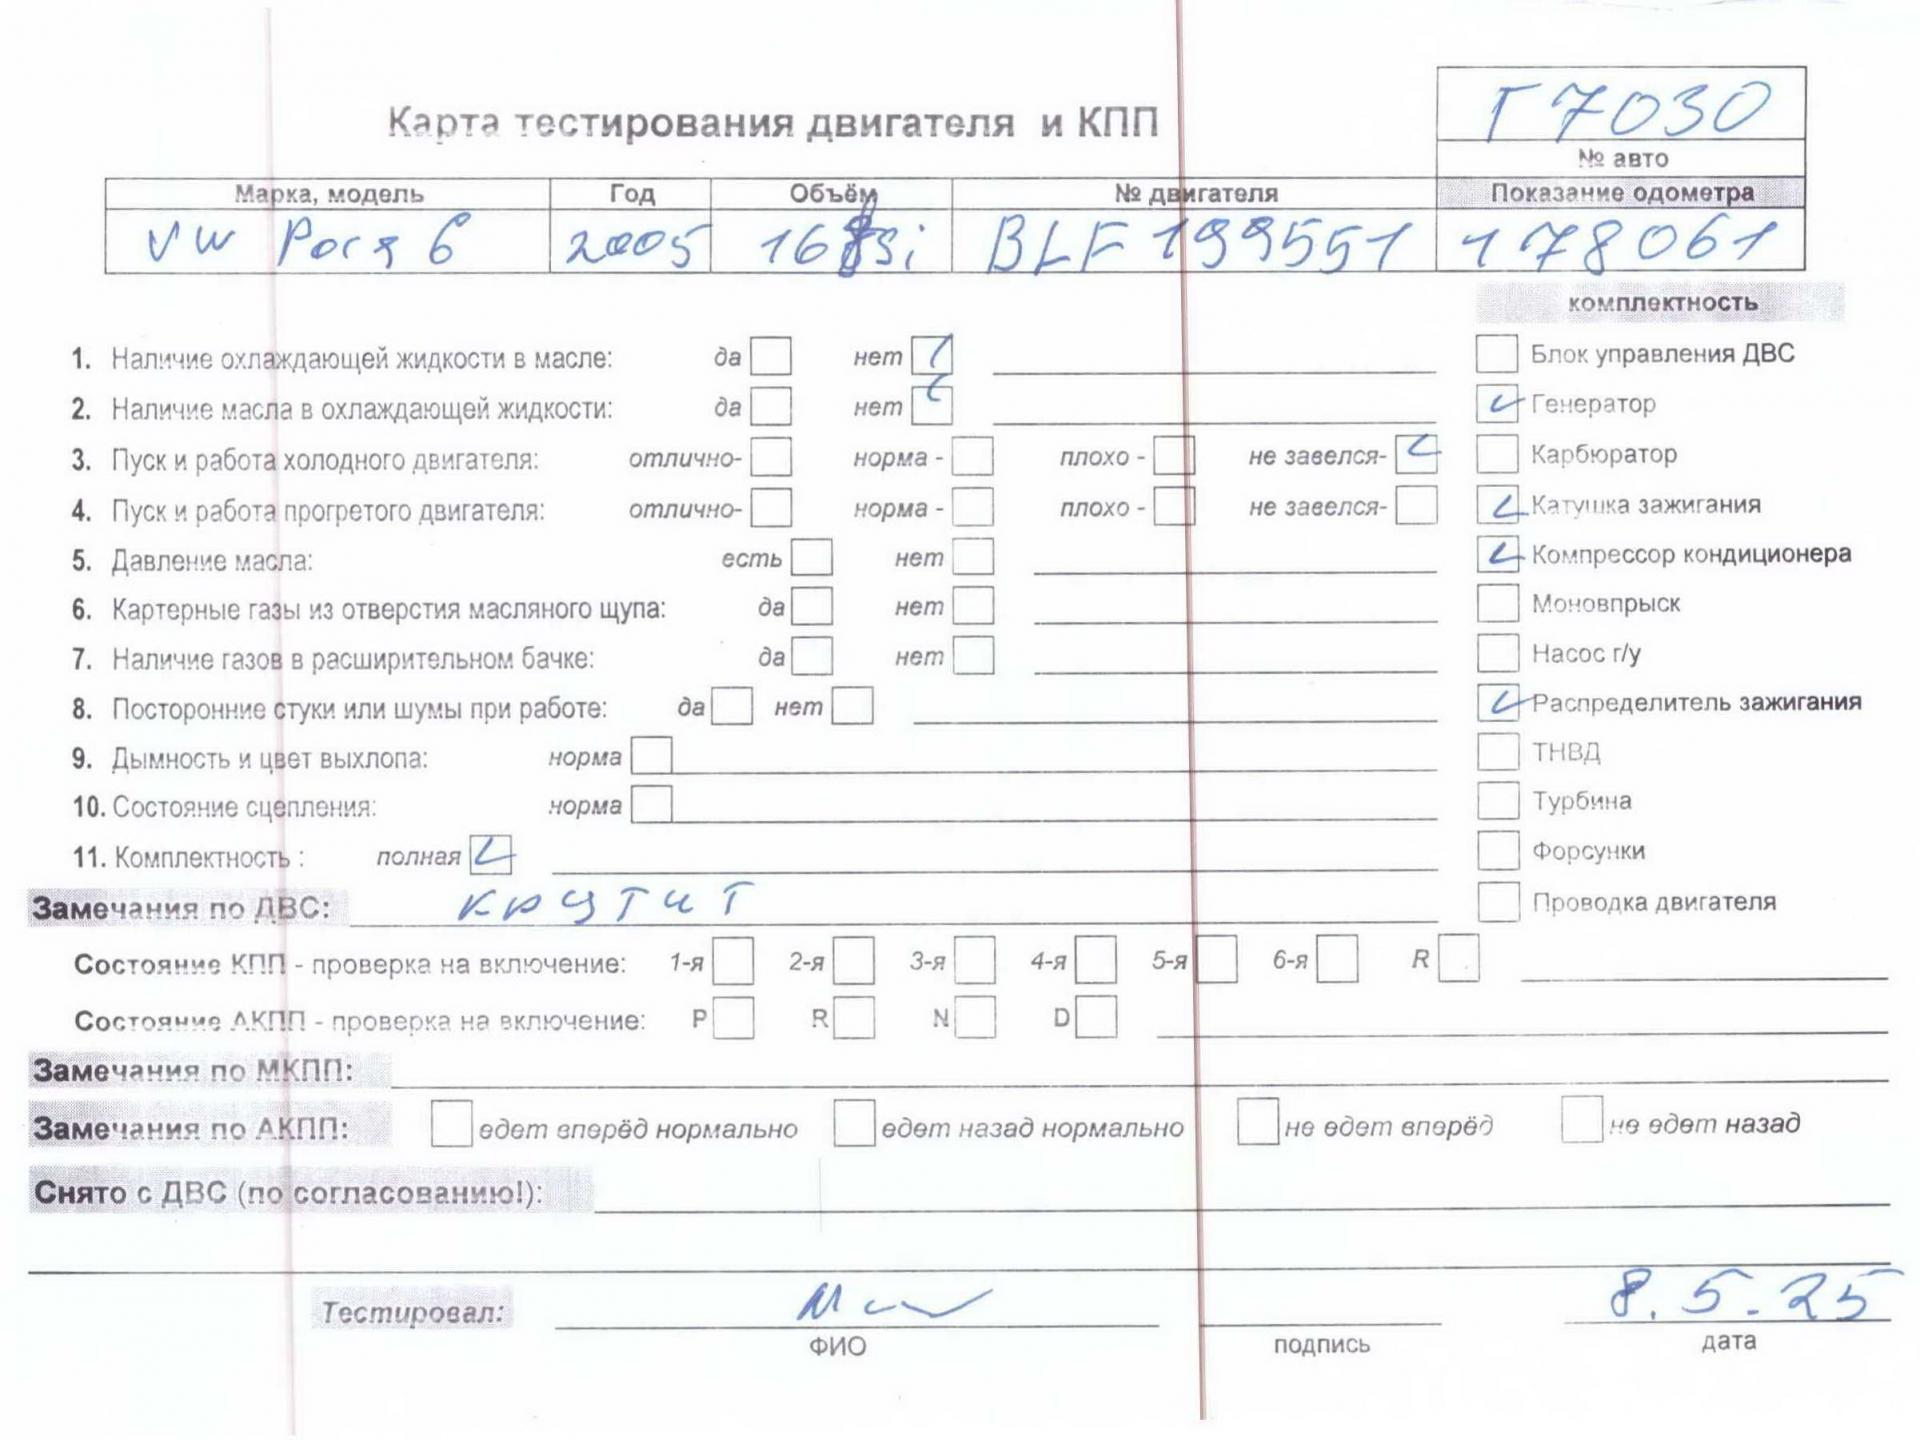 Г7030
Карта тестирования двигателя и КПП
№ авто
Марка, модель Год Объём № двигателя Показание одометра
VW 2005 BLF 199551 178061
комплектность
1. Наличие охлаждающей жидкости в масле: да нет
Блок управления ДВС
2. Наличие масла в охлаждающей жидкости: да нет
Генератор
3. Пуск и работа холодного двигателя: отлично- норма - плохо - не завелся-
Карбюратор
4. Пуск и работа прогретого двигателя: отлично- норма - плохо - не завелся-
Катушка зажигания
5. Давление масла: есть нет
Компрессор кондиционера
6. Картерные газы из отверстия масляного щупа: да нет
Моновпрыск
7. Наличие газов в расширительном бачке: да нет
Насос г/у
8. Посторонние стуки или шумы при работе: да нет
Распределитель зажигания
9. Дымность и цвет выхлопа: норма
ТНВД
10. Состояние сцепления: норма
Турбина
11. Комплектность : полная
Форсунки
Замечания по ДВС: крутит
Проводка двигателя
Состояние КПП - проверка на включение: 1-я 2-я 3-я 4-я 5-я 6-я R
Состояние АКПП - проверка на включение: P R N D
Замечания по МКПП:
Замечания по АКПП: едет вперёд нормально едет назад нормально не едет вперёд не едет назад
Снято с ДВС (по согласованию!):
Тестировал: 8.5.25
ФИО подпись дата